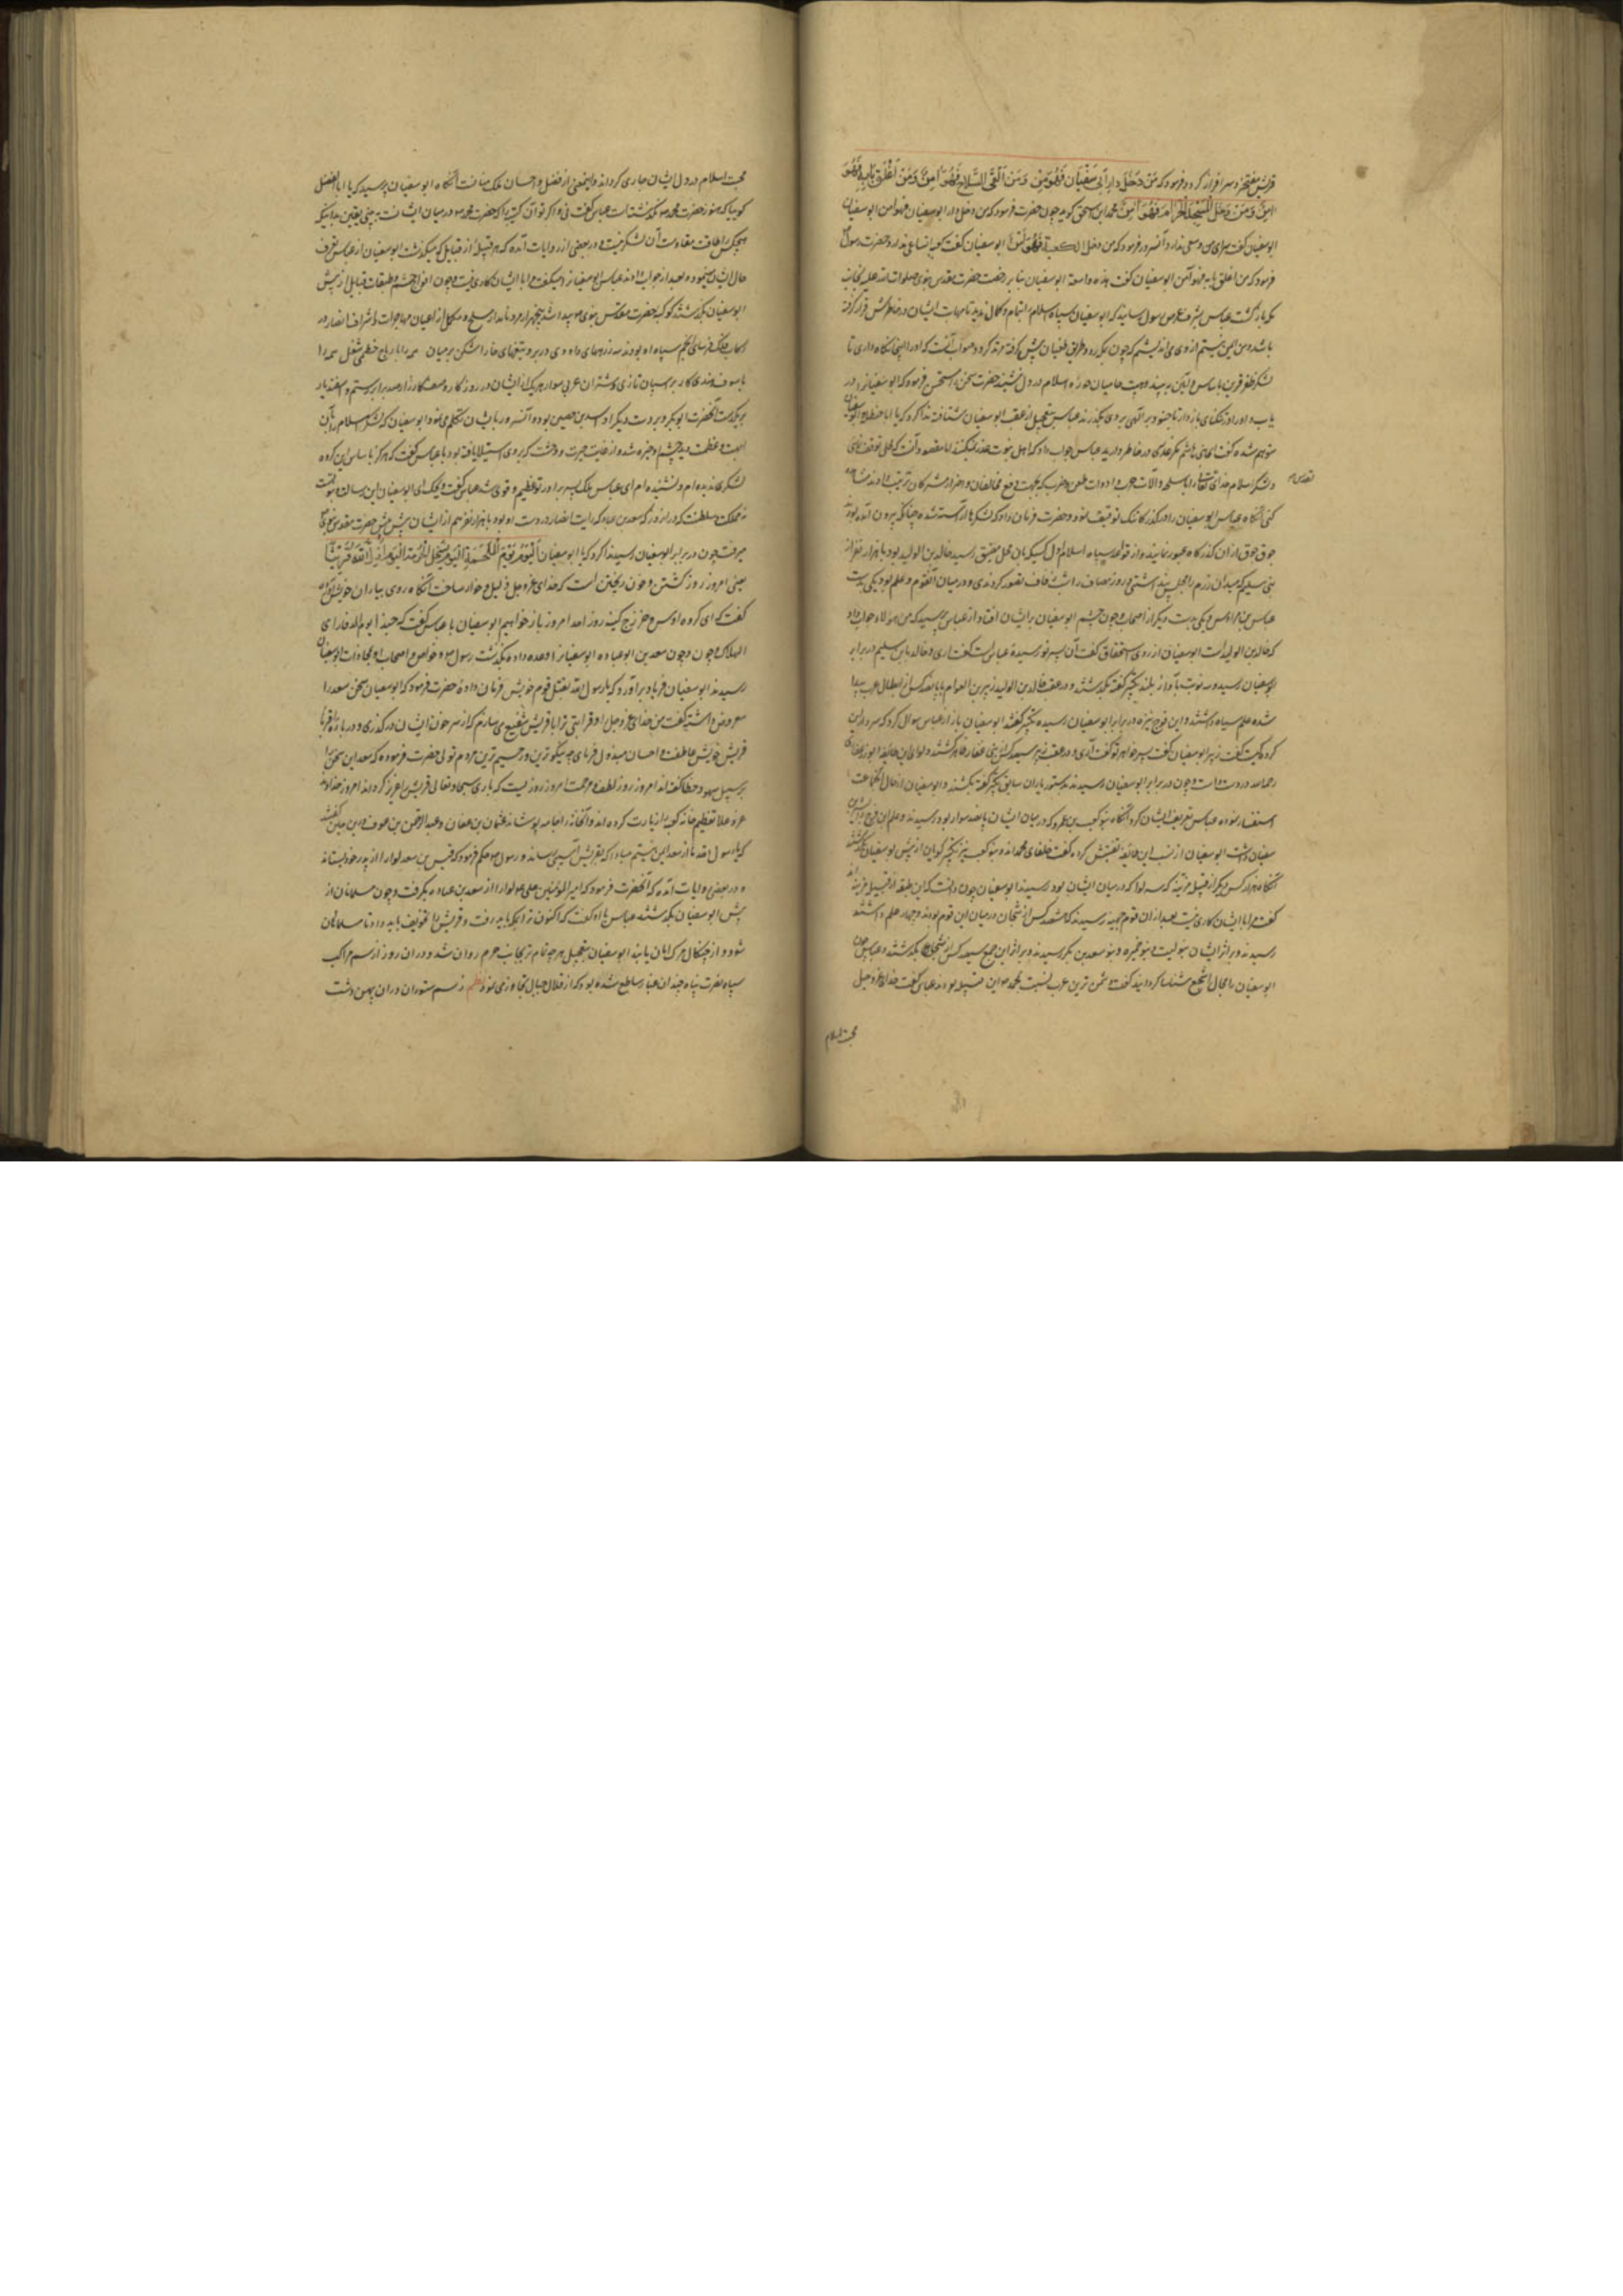 قریش مفتخر و سرافراز گردد فرمود که مَنْ دَخَلَ دار اَبی سُفْیَان فَهُوَ آمِنٌ وَ مَنْ اَلْقَی السِّلَاحَ فَهُوَ آمِنٌ وَ مَنْ اَغْلَقَ بَابَهُ فَهُوَ
آمِنٌ وَ مَنْ دَخَلَ الْمَسْجِدَ الْحَرَامَ فَهُوَ آمِنٌ محمد ابن اسحق گوید چون حضرت فرمود که من دخل دار ابوسفیان فهو امن ابوسفیان
ابوسفیان گفت سرای من وسعتی ندارد آنسرور فرمود که من دخل الکعبة فَهُوَ آمِنٌ ابوسفیان گفت کعبه اتساعی ندارد حضرت رسول
فرمود که من اغلق بابه فهو آمن ابوسفیان گفت هذه واسعة ابوسفیان بنا بر رخصت حضرت مقدس نبوی صلوات الله علیه بجانب
مکه بازگشت عباس بشرف عرض رسول رسانید که ابوسفیان سپاه اسلام را بتمام و کمال ندید تا مهابت ایشان در خاطرش قرار گرفته
باشد و من ایمن نیستم از وی می اندیشم که چون بمکه رود طریق طغیان پیش گرفته مرتد گردد صواب آنست که او را اینجا نگاه داری تا
لشکر ظفر قرین با ساس و آئین به بیند و هیبت حامیان حوزه اسلام در دل نشیند حضرت سخن را مستحسن فرمود که ابوسفیانرا در
یاب و او را در تنگنای باز دار تا جنود الهی بر وی بگذرند عباس بتعجیل از عقب ابوسفیان شتافته ندا کرد که یا ابا حنظله ابوسفیان
متوهم شده گفت ای بنی هاشم مگر غدری در خاطر دارید عباس جواب داد که اهل نبوت غدر نمیکنند اما مقصود آنست که لحظه توقف نمای
و لشکر اسلام خدای تعالی را با سلحه و آلات حرب و ادوات طعن و ضرب که بجهت دفع مخالفان و اضرار مشرکان ترتیب داده اند مشاهده
کنی آنگاه عباس ابوسفیان را در گذرگاه تنگ توقیف نمود و حضرت فرمان داد که لشکرها آراسته شده چنانکه بیرون آمده بودند
جوق جوق از آن گذرگاه عبور نمایند و از قواعد سپاه اسلام اول کسیکه بان محل مضیق رسید خالد بن الولید بود با هزار نفر از
بنی سلیم که میدان رزم را مجلس بزم پنداشتی و روز مصاف را شب زفاف تصور کردندی و در میان آنقوم دو علم بود یکی بدست
عباس بن مرداس و یکی بدست دیگر از اصحاب چون چشم ابوسفیان بر ایشان افتاد از عباس پرسید که من هؤلاء جواب داد
که خالد بن الولید است ابوسفیان از روی استخفاف گفت آن پسر نورسیده عباس گفت آری و خالد با بنی سلیم در برابر
ابوسفیان رسید و سه نوبت بآواز بلند تکبیر گفته بگذشتند و در عقب خالد بن الولید زبیر بن العوام با پانصد کس از ابطال عرب پیدا
شده علم سیاه داشتند و این فوج نیزه در برابر ابوسفیان رسیده تکبیر گفتند ابوسفیان باز از عباس سوال کرد که سردار این
گروه کیست گفت زبیر ابوسفیان گفت پسر خواهر تو گفت آری و در عقب زبیر سیصد کس از بنی غفار ظاهر گشتند و لوای این طایفه ابوذر غفاری
رحمه الله در دست داشت چون در برابر ابوسفیان رسیدند بدستور یاران سابق تکبیر گفته بگذشتند و ابوسفیان از حال آنجماعت
استفسار نموده عباس تعریف ایشان کرد آنگاه بنو کعب بن عمرو که در میان ایشان پانصد سوار بود رسیدند و علم این فوج بشر بن
سفیان داشت ابوسفیان از نسب این طایفه تفتیش کرده گفت حلفای محمد اند و بنو کعب نیز تکبیر گویان از پیش ابوسفیان بگذشتند
آنگاه هزار کس دیگر از قبیله مزینه که سه لوا که در میان ایشان بود رسیدند ابوسفیان چون دانست که این طبقه از قبیله مزینه اند
گفت مرا با ایشان کاری نیست بعد از آن قوم جهینه رسیدند که هشتصد کس از شجعان در میان این قوم بودند و چهار علم داشتند
رسیدند و بر اثر ایشان بنو لیث و بنو ضمره و بنو سعد بن بکر رسیدند و بر اثر این جمع سیصد کس از اشجع بگذشتند و عباس چون
ابوسفیان را بحال اشجع شناسا گردانید گفت دشمن ترین عرب نسبت بمحمد صواین قبیله بودند عباس گفت خدای عز و جل
محبت اسلام
محبت اسلام در دل ایشان جاری گردانید و اینمعنی از فضل و احسان ملک منانست آنگاه ابوسفیان پرسید که یا ابا الفضل
گوییا که هنوز حضرت محمد ص نگذشته است عباس گفت نی و اگر تو آن کتیبه را که حضرت محمد ص در میان ایشانست به بینی یقین بدانیکه
هیچکس را طاقت مقاومت آن لشکر نیست و در بعضی از روایات آمده که هر قبیله از قبایل که میگذشت ابوسفیان از عباس تعرف
حال ایشان مینمود و بعد از جواب دادن عباس ابوسفیان میگفت مرا با ایشان کاری نیست و چون افواج حشم و طبقات قبایل از پیش
ابوسفیان بگذشتند کوکبه حضرت مقدس نبوی ص پیدا شد پنجهزار مرد نامدار مسلح و مکمل از اعیان مهاجرات و اشراف انصار در
رکاب فلک فرسای انجم سپاه او بودند همه زرههای داودی در بر و تیغهای خارا شکن بر میان همه را با رماح خطی شغل همه را
با سیوف هندی کار بر اسپان تازی و شتران عربی سوار هر یک از ایشان در روز کار و معرکه کارزار صد برابر رستم و اسفندیار
بر یکدست آنحضرت ابوبکر و بر دست دیگر اسید بن حضیر بوده و آنسرور با ایشان تکلم مینمود ابوسفیان که لشکر اسلام را بآن
ابهت و عظمت دید چشم او خیره شد و از غایت حیرت و دهشت که بر وی استیلا یافته بود با عباس گفت که هرگز با ساس این گروه
لشکری ندیده ام و نشنیده ام ای عباس ملک پسر برادر تو عظیم و قوی شد عباس گفت ویحک ای ابوسفیان این رسالت و نبوتست
نه مملکت و سلطنت که در آن روز که سعد بن عباده که رایت انصار در دست او بود با هزار نفر هم از ایشان پیش پیش حضرت مقدس نبوی ص
میرفت چون در برابر ابوسفیان رسید ندا کرد که یا ابوسفیان اَلْیَوْمُ یَوْمُ الْمَلْحَمَةِ الْیَوْمَ تُسْتَحَلُّ الْحُرْمَةُ الْیَوْمَ اَذَلَّ اللهُ قُرَیْشًا
یعنی امروز روز کشتن و خون ریختن است که خدای عز و جل ذلیل و خوار ساخت آنگاه روی بیاران خویش کرده
گفت که ای گروه اوس و خزرج کینه روز احد امروز باز خواهیم ابوسفیان با عباس گفت که حبذا یوم الذمار ای
الهلاک و چون سعد بن ابو عباده ابوسفیانرا وعده داده بگذشت رسول ص و خواص اصحاب او بمحاذات ابوسفیان
رسیدند ابوسفیان فریاد برآورد که یا رسول الله بقتل قوم خویش فرمان داده حضرت فرمود که ابوسفیان سخن سعد را
معروض داشته گفت من خدای عز و جل و قرابتی ترا با قریش شفیع میسازم که از سر خون ایشان در گذری و در باره اقربا
قریش خویش عاطفت و احسان مبذول فرمای چه نیکو ترین و رحیم ترین مردم توئی حضرت فرموده که سعد این سخن را
بر سبیل سهو و خطا گفته اند امروز روز لطف و مرحمت است امروز روزیست که باری سبحانه و تعالی قریش را عزیز گرداند امروز خداوند
عز و علا تعظیم خانه کعبه را زیادت گردانند و آنخانه را جامه پوشانند عثمان بن عفان و عبد الرحمن بن عوف در این حین گفتند
که یا رسول الله ما از سعد ایمن نیستیم مبادا که بقریش آسیبی رساند و رسول ص حکم فرمود که قیس بن سعد لوا را از پدر خود بستاند
و در بعضی روایات آمده که آنحضرت فرمود که امیر المؤمنین علی ع لوا را از سعد بن عباده بگرفت و چون مسلمانان از
پیش ابوسفیان بگذشتند عباس با او گفت که اکنون ترا بمکه باید رفت و قریش را تخویف باید داد تا مسلمانان
شود و از چنگال مرگ امان یابند ابوسفیان بتعجیل هر چه تمام تر بجانب حرم روان شد و در آن روز از سم مراکب
سپاه نصرت پناه چندان غبار ساطع شده بود که از قلال جبال تجاوز می نمود نظم ز سم ستوران در آن پهن دشت